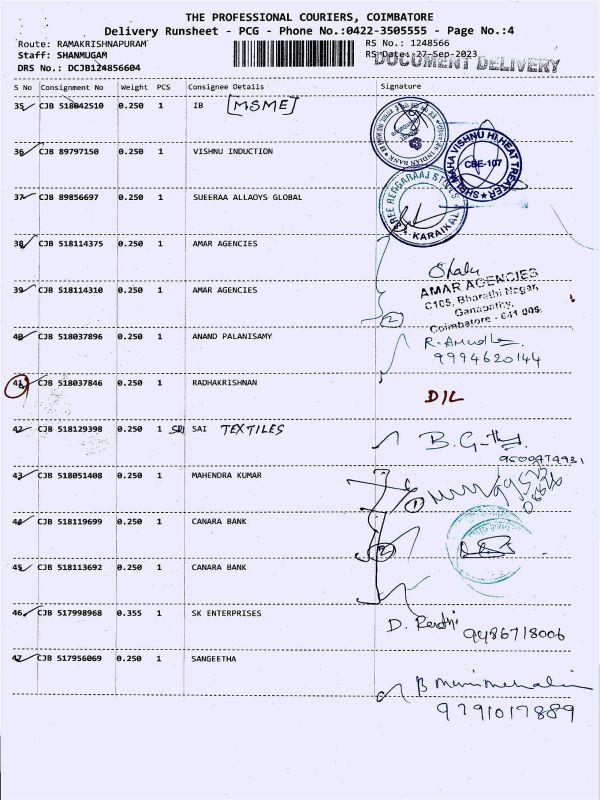 THE PROFESSIONAL COURIERS, COIMBATORE
Delivery Runsheet - PCG - Phone No.:0422-3505555 - Page No.:4
Route: RAMAKRISHNAPURAM RS No.: 1248566
Staff: SHANMUGAM RS Date: 27-Sep-2023
DRS No.: DCJB124856604 DOCUMENT DELIVERY
S No Consignment No Weight PCS Consignee Details Signature
35 CJB 518042510 0.250 1 IB [MSME]
INDIAN BANK
36 CJB 89797150 0.250 1 VISHNU INDUCTION
SHRI MAHA VISHNU HI HEAT TREATER
CBE-107
37 CJB 89856697 0.250 1 SUEERAA ALLAOYS GLOBAL
SREE RENGARAAJ STEELS
KARAIKAL
38 CJB 518114375 0.250 1 AMAR AGENCIES
39 CJB 518114310 0.250 1 AMAR AGENCIES
AMAR AGENCIES
C105, Bharathi Nagar,
Ganapathy,
Coimbatore - 641 006.
2
40 CJB 518037896 0.250 1 ANAND PALANISAMY
9994620144
41 CJB 518037846 0.250 1 RADHAKRISHNAN
D/L
42 CJB 518129398 0.250 1 SRI SAI TEXTILES
43 CJB 518051408 0.250 1 MAHENDRA KUMAR
1
44 CJB 518119699 0.250 1 CANARA BANK
2
45 CJB 518113692 0.250 1 CANARA BANK
46 CJB 517998968 0.355 1 SK ENTERPRISES
9486718006
47 CJB 517956069 0.250 1 SANGEETHA
9791017889